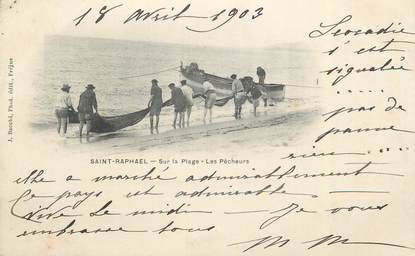 18 Avril 1903
Leocadie
s'est
signalée
....
pas de
panne
rien ....
J. Bacchi, Phot. édit., Fréjus
SAINT-RAPHAEL — Sur la Plage - Les Pêcheurs
elle a marché admirablement
Ce pays est admirable —
Vive le midi — Je vous
embrasse tous
M M